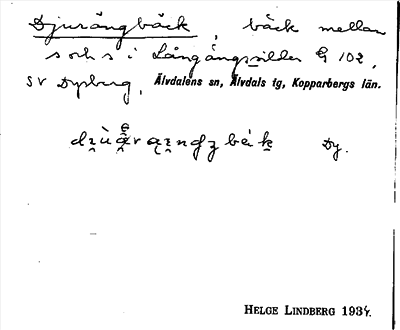 Djurängbäck, bäck mellan
s och s i Långängssilder G 102,
SV Dysberg, Älvdalens sn, Älvdals tg, Kopparbergs län.
Dy.
HELGE LINDBERG 1934.